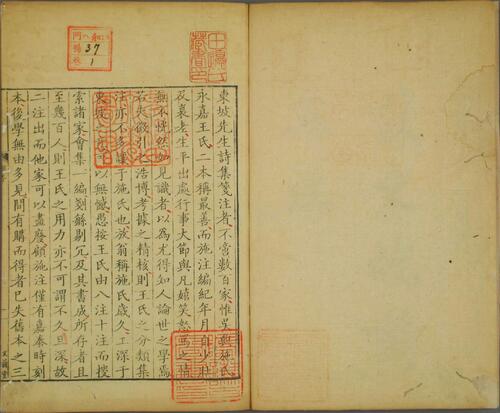 東坡先生詩集箋注者不啻數百家惟吳興施氏
永嘉王氏二本稱最善而施注編紀年月自少壯
及衰老生平出處行事大節與凡嬉笑怒罵之情
無不恍然如見識者以為尤得知人論世之學焉
若夫徵引之浩博考據之精核則王氏之分類集
注亦不多讓于施氏也放翁稱施氏歲久工深于
東坡之意
以無憾愚按王氏由八注十注而搜
索諸家會集一編剗餘剔冗及其書成所存者且
至幾百人則王氏之用力亦不可謂不久且深故
二注出而他家可以盡廢顧施注僅有嘉泰時刻
本後學無由多見間有購而得者已失舊本之三
文蔚堂
37
1